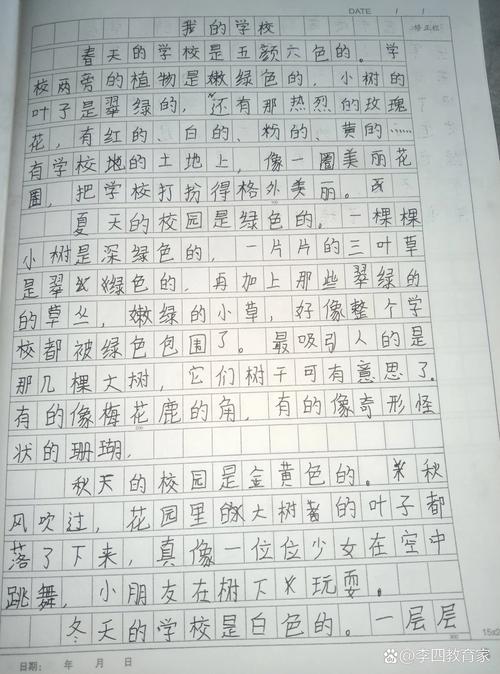 DATE / /
我的学校
修正栏
春天的学校是五颜六色的。学
校两旁的植物是嫩绿色的，小树的
叶子是翠绿的，还有那热烈的玫瑰
花，有红的、白的、粉的、黄的……
有学校地的土地上，像一圈美丽花
圃，把学校打扮得格外美丽。
夏天的校园是绿色的。一棵棵
小树是深绿色的，一片片的三叶草
是翠绿色的，再加上那些翠绿的
的草丛，嫩绿的小草，好像整个学
校都被绿色包围了。最吸引人的是
那几棵大树，它们树干可有意思了.
有的像梅花鹿的角，有的像奇形怪
状的珊瑚.
秋天的校园是金黄色的。秋
风吹过，花园里的大树的叶子都
落了下来，真像一位位少女在空中
跳舞，小朋友在树下玩耍。
冬天的学校是白色的。一层层
日期： 年 月 日
@李四教育家